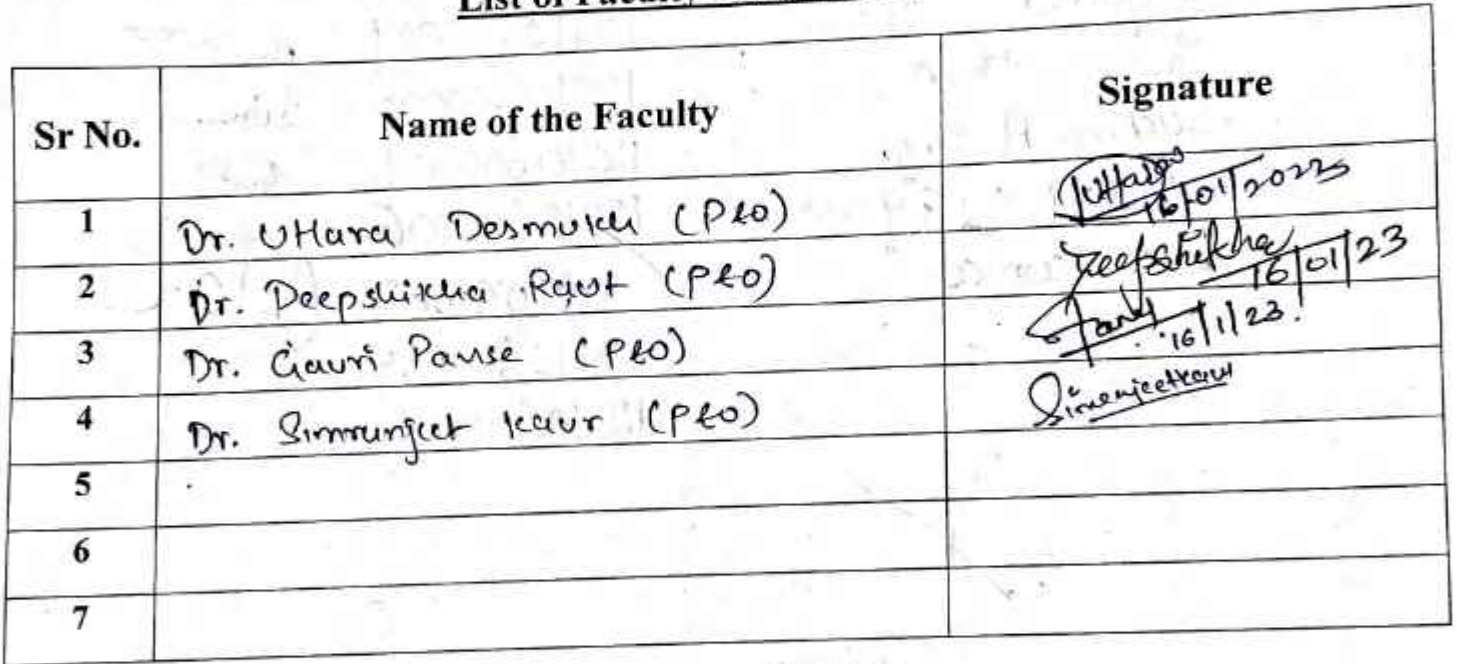 List of Faculty
Sr No. Name of the Faculty Signature
1 Dr. Uttara Desmukh (PEO) Uttara 16/01/2023
2 Dr. Deepshikha Raut (PEO) Deepshikha 16/01/23
3 Dr. Gauri Pause (PEO) 16/1/23.
4 Dr. Simrunjeet kaur (PEO) Simranjeetkaur
5
6
7